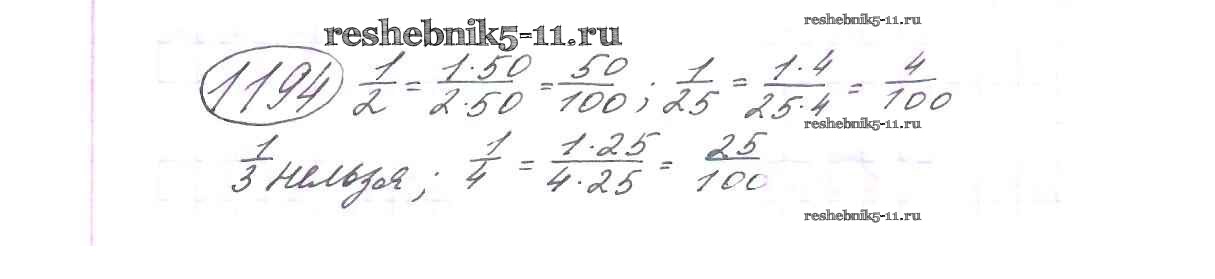 reshebnik5-11.ru
reshebnik5-11.ru
1194 1/2 = 1·50/2·50 = 50/100 ; 1/25 = 1·4/25·4 = 4/100
reshebnik5-11.ru
1/3 нельзя ; 1/4 = 1·25/4·25 = 25/100
reshebnik5-11.ru